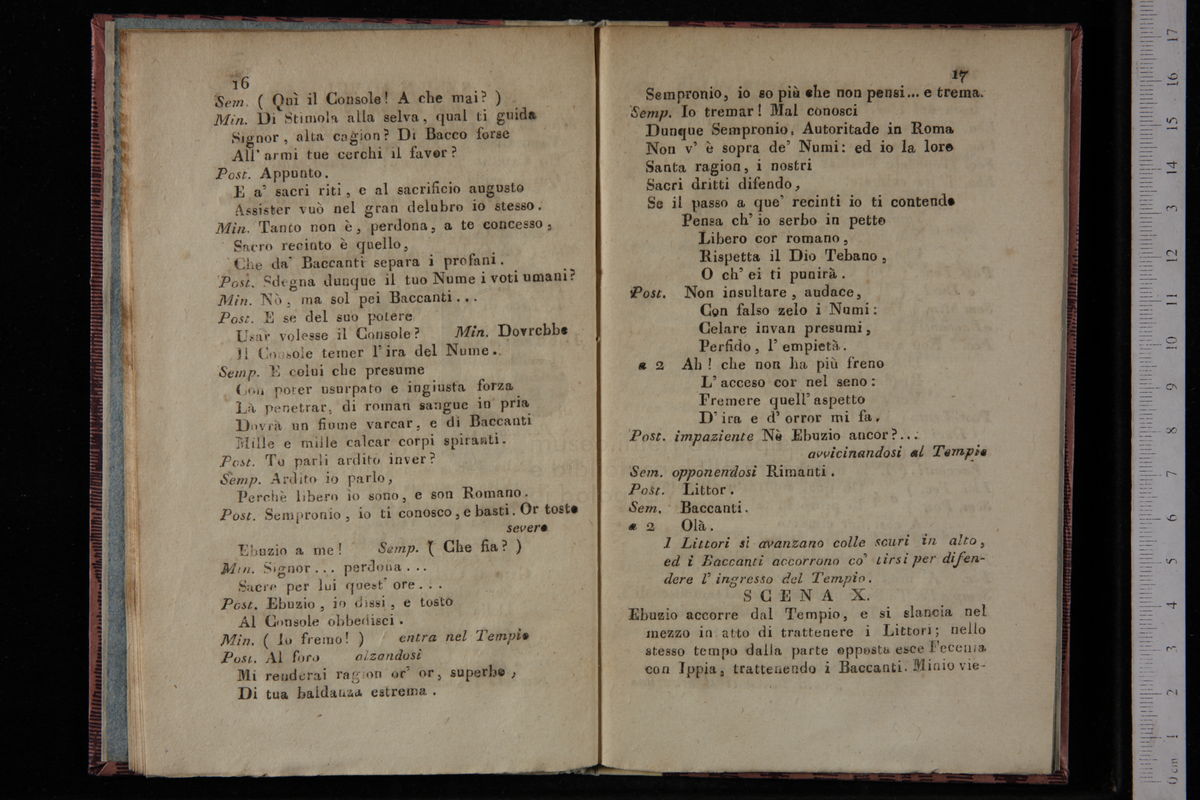 16
Sem. ( Quì il Console! A che mai? )
Min. Di Stimola alla selva, qual ti guida
Signor, alta cagion? Di Bacco forse
All' armi tue cerchi il favor?
Post. Appunto.
E a' sacri riti, e al sacrificio augusto
Assister vuò nel gran delubro io stesso.
Min. Tanto non è, perdona, a te concesso,
Sacro recinto è quello,
Che da' Baccanti separa i profani.
Post. Sdegna dunque il tuo Nume i voti umani?
Min. Nò, ma sol pei Baccanti...
Post. E se del suo potere
Usar volesse il Console? Min. Dovrebbe
Il Console temer l'ira del Nume.
Semp. E colui che presume
Con poter usurpato e ingiusta forza
Là penetrar, di roman sangue in pria
Dovrà un fiume varcar, e di Baccanti
Mille e mille calcar corpi spiranti.
Post. Tu parli ardito inver?
Semp. Ardito io parlo,
Perchè libero io sono, e son Romano.
Post. Sempronio, io ti conosco, e basti. Or tosto
severo
Ebuzio a me! Semp. ( Che fia? )
Min. Signor... perdona...
Sacre per lui quest' ore...
Post. Ebuzio, io dissi, e tosto
Al Console obbedisci.
Min. ( Io fremo! ) entra nel Tempio
Post. Al foro alzandosi
Mi renderai ragion or' or, superbo,
Di tua baldanza estrema.
17
Sempronio, io so più che non pensi... e trema.
Semp. Io tremar! Mal conosci
Dunque Sempronio, Autoritade in Roma
Non v' è sopra de' Numi: ed io la loro
Santa ragion, i nostri
Sacri dritti difendo,
Se il passo a que' recinti io ti contendo
Pensa ch' io serbo in petto
Libero cor romano,
Rispetta il Dio Tebano,
O ch' ei ti punirà.
Post. Non insultare, audace,
Con falso zelo i Numi:
Celare invan presumi,
Perfido, l' empietà.
a 2 Ah! che non ha più freno
L' acceso cor nel seno:
Fremere quell' aspetto
D' ira e d' orror mi fa.
Post. impaziente Nè Ebuzio ancor?...
avvicinandosi al Tempio
Sem. opponendosi Rimanti.
Post. Littor.
Sem. Baccanti.
a 2 Olà.
I Littori si avanzano colle scuri in alto,
ed i Baccanti accorrono co' tirsi per difen-
dere l' ingresso del Tempio.
SCENA X.
Ebuzio accorre dal Tempio, e si slancia nel
mezzo in atto di trattenere i Littori; nello
stesso tempo dalla parte opposta esce Fecenia
con Ippia, trattenendo i Baccanti. Minio vie-
0 cm 1 2 3 4 5 6 7 8 9 10 11 12 13 14 15 16 17